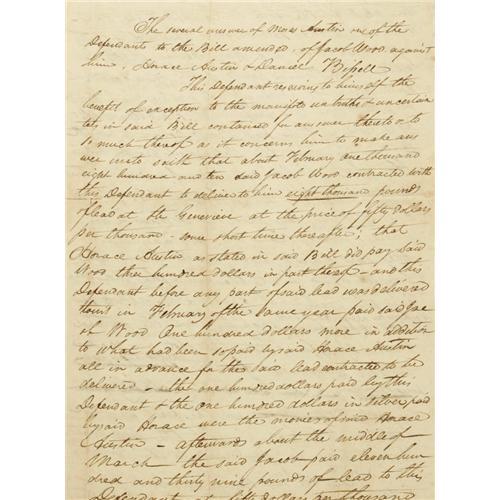 The several answer of Moses Austin one of the
Defendants to the Bill amended, of Jacob Wood against
him, Horace Austin & Daniel Bissell
This Defendant reserving to himself the
benefit of exception to the manifold untruths & uncertain
ties in said Bill contained for answer thereto or to
so much thereof as it concerns him to make ans
wer unto saith that about February one thousand
eight hundred and ten said Jacob Wood contracted with
this Defendant to deliver to him eight thousand pounds
of lead at Ste Genevieve at the price of fifty dollars
per thousand – some short time thereafter, that
Horace Austin as stated in said Bill did pay said
Wood three hundred dollars in part thereof – and this
Defendant before any part of said lead was delivered
to us in February of the same year paid said Jac
ob Wood One hundred dollars more in addition
to what had been so paid by said Horace Austin
all in advance for the said lead contracted to be
delivered – the one hundred dollars paid by this
Defendant & the one hundred dollars in silver paid
by said Horace were the monies of said Horace
Austin – afterwards about the middle of
March the said Jacob paid eleven hun
dred and thirty nine pounds of lead to this
Defendant at fifty dollars per thousand